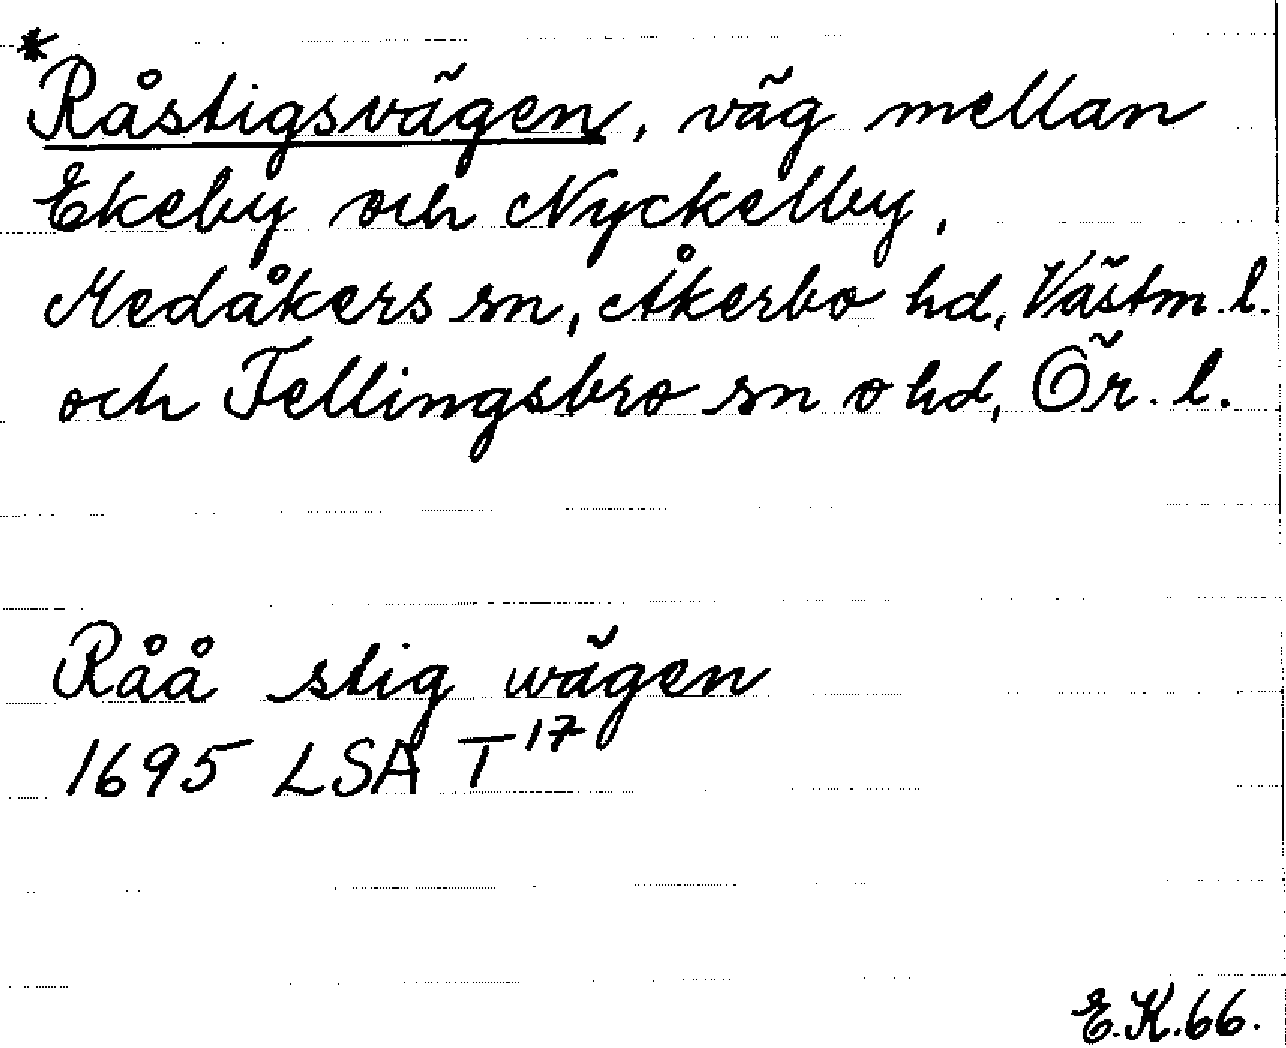 *Råstigsvägen, väg mellan
Ekeby och Nyckelby,
Medåkers sn, Åkerbo hd, Västm. l.
och Fellingsbro sn o hd, Ör. l.
Råå stig wägen
1695 LSA T17
E.K.66.